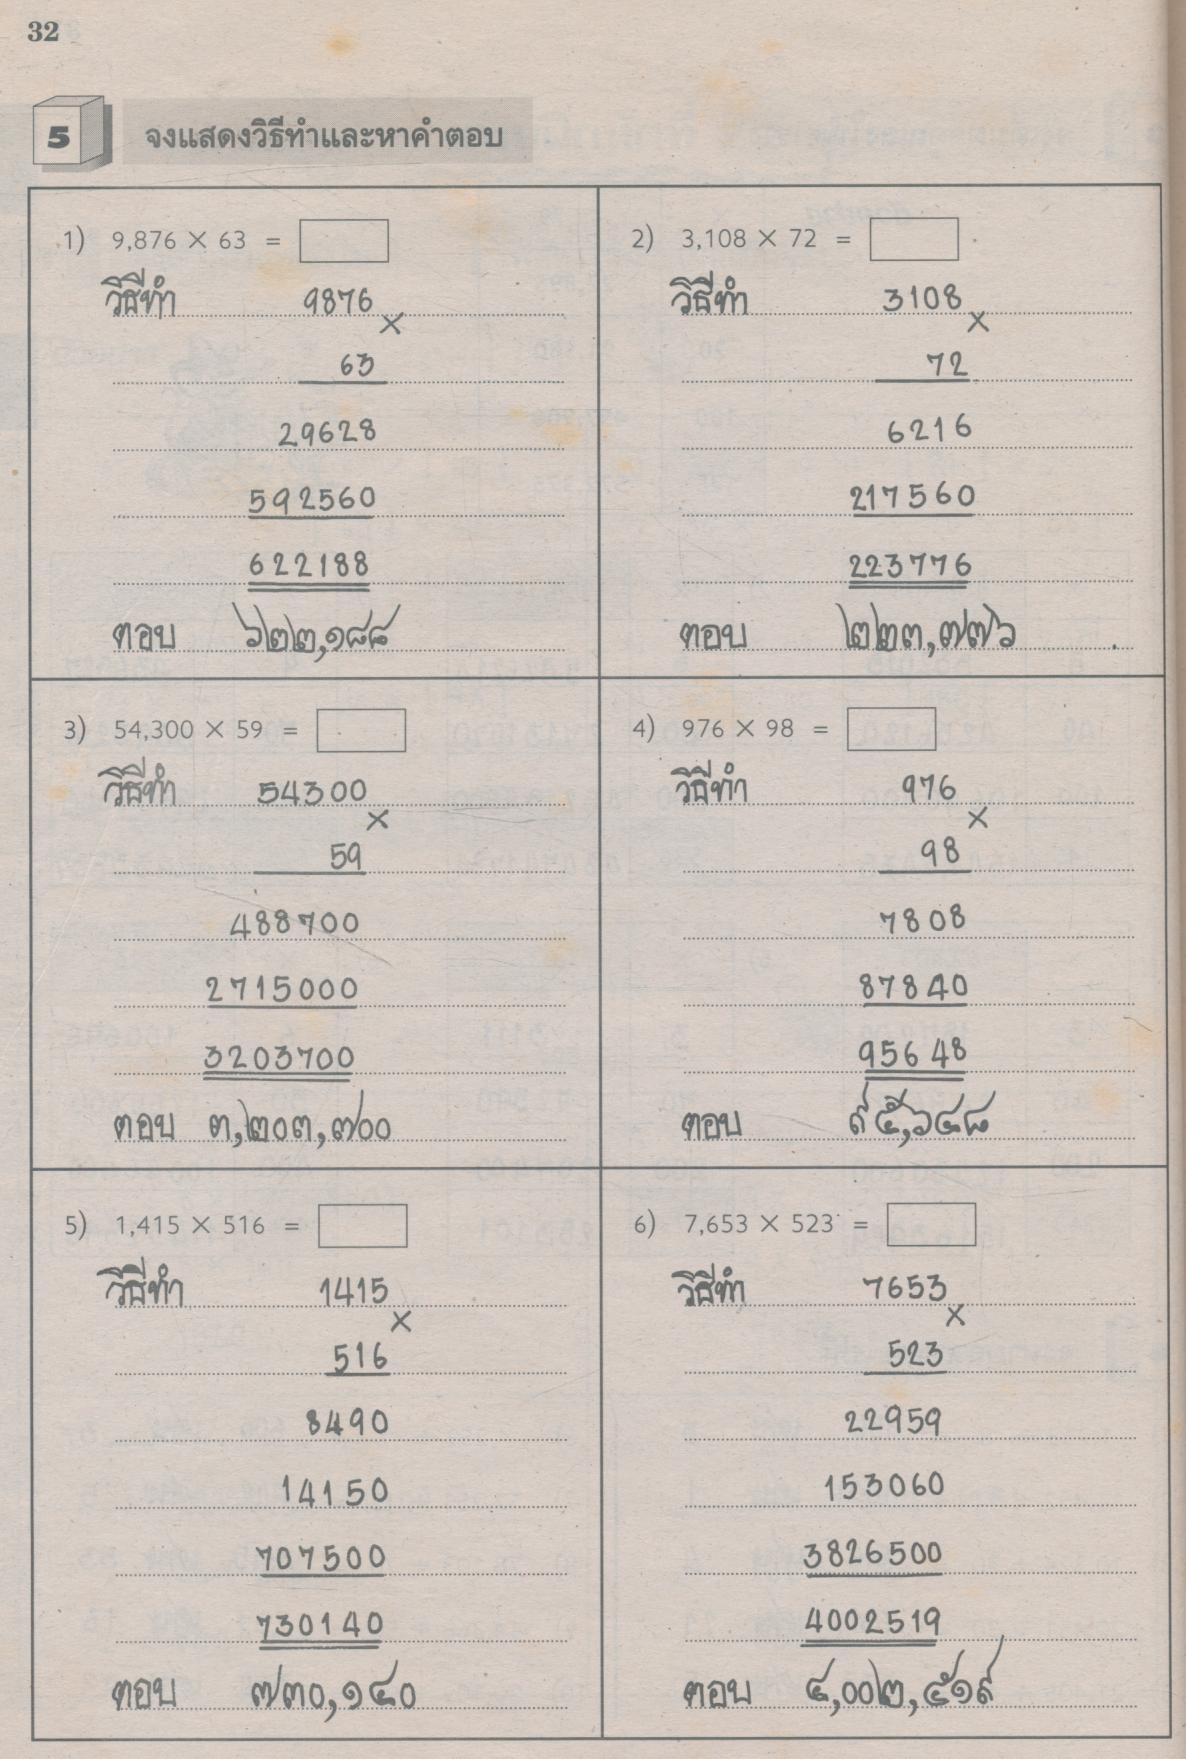 32
5 จงแสดงวิธีทำและหาคำตอบ
1) 9,876 × 63 =
วิธีทำ 9876 ×
63
29628
592560
622188
ตอบ ๖๒๒,๑๘๘
2) 3,108 × 72 =
วิธีทำ 3108 ×
72
6216
217560
223776
ตอบ ๒๒๓,๗๗๖
3) 54,300 × 59 =
วิธีทำ 54300 ×
59
488700
2715000
3203700
ตอบ ๓,๒๐๓,๗๐๐
4) 976 × 98 =
วิธีทำ 976 ×
98
7808
87840
95648
ตอบ ๙๕,๖๔๘
5) 1,415 × 516 =
วิธีทำ 1415 ×
516
8490
14150
707500
730140
ตอบ ๗๓๐,๑๔๐
6) 7,653 × 523 =
วิธีทำ 7653 ×
523
22959
153060
3826500
4002519
ตอบ ๔,๐๐๒,๕๑๙